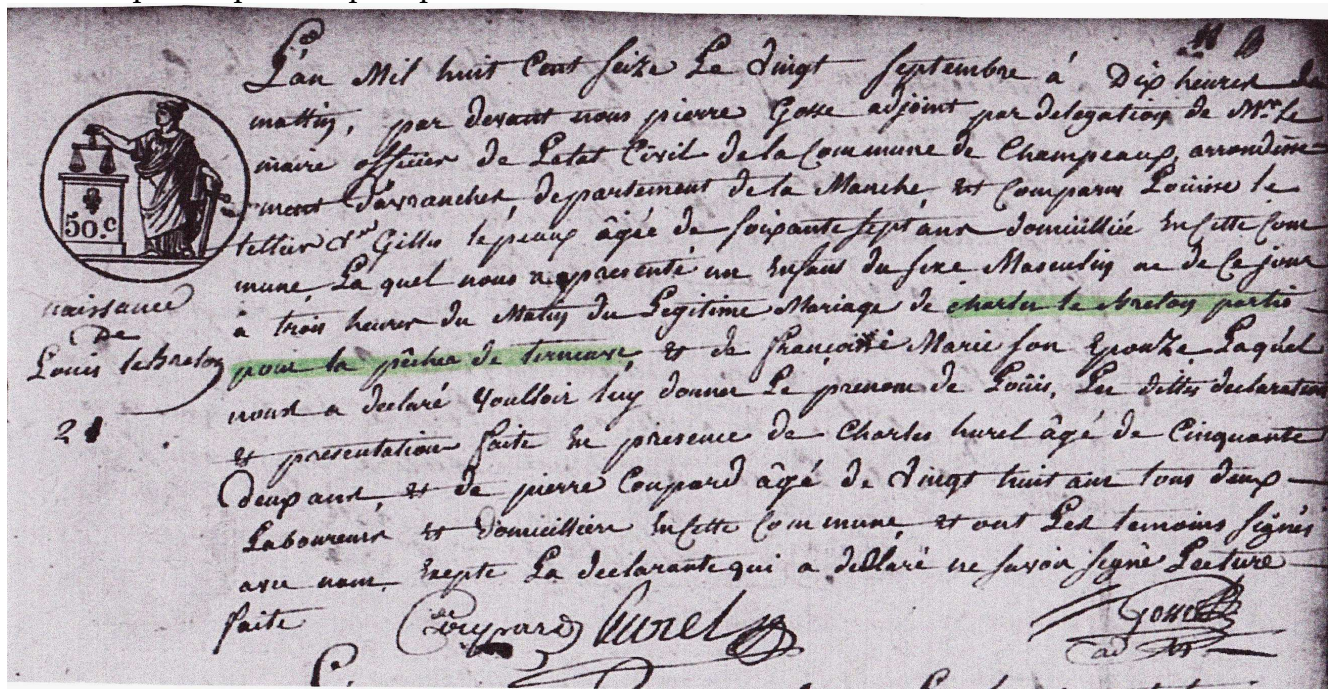 L'an Mil huit Cent seize Le vingt septembre à Dix heures du
mattin, par devant nous pierre Gosse adjoint par delegation de Mr. Le
maire officier de Letat Civil de la Commune de Champeaux, arrondisse-
ment d'avranches, departement de la Manche, est Comparu Loüise le
tellier Gilles lepeaux âgée de soixante sept ans domicilliée En Cette Com
mune, La quel nous a presenté un Enfant du sexe Masculin ne de Ce jour
à trois heures du Matin du Legitime Mariage de charles le Breton partis
pour la pêche de terneuve, et de françoise Marie son Epouze Laquel
nous a declaré voulloir luy donner Le prenom de Loüis, Les dittes declaration
et presentation faite En presence de Charles hurel âgé de Cinquante
Deux ans, et de pierre Coupard âgé de vingt huit ans tous deux
Laboureurs et domicilliers En Cette Commune et ont Les temoins signés
avec nous, Exepte La declarante qui a declaré ne savoir signé Lecture
faite
Coupard hurel
Gosse
ad
50.c
naissance
De
Louis leBreton
21